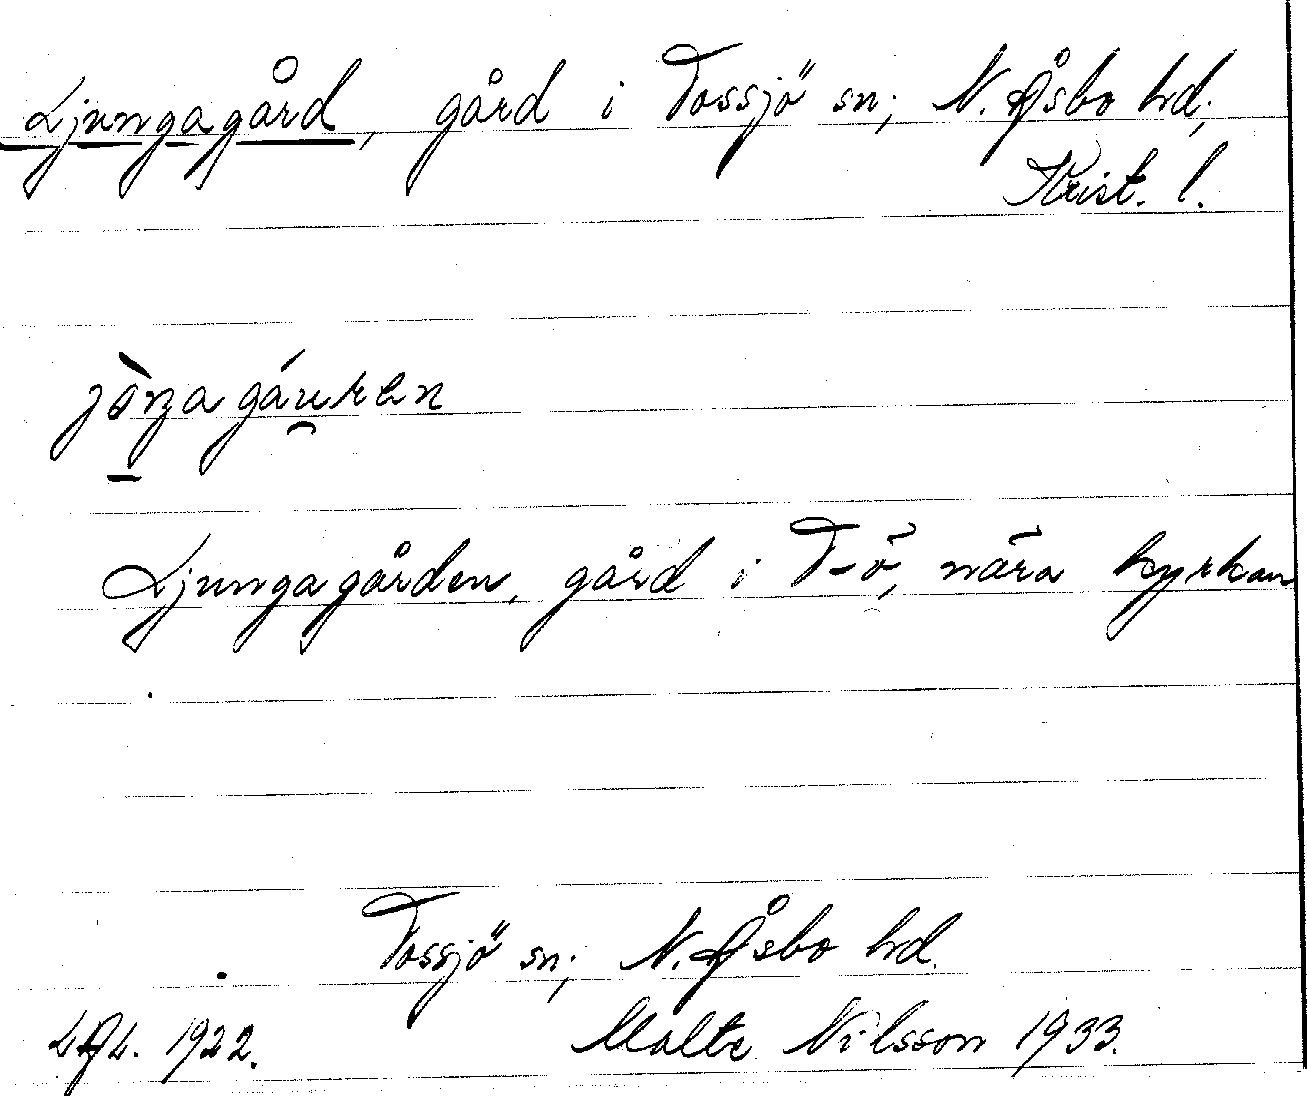 Ljungagård, gård i Tossjö sn; N. Åsbo hd;
Krist. l.
Ljungagården, gård i T-ö, nära kyrkan
Tossjö sn; N. Åsbo hd.
LAL. 1922. Malte Nilsson 1933.